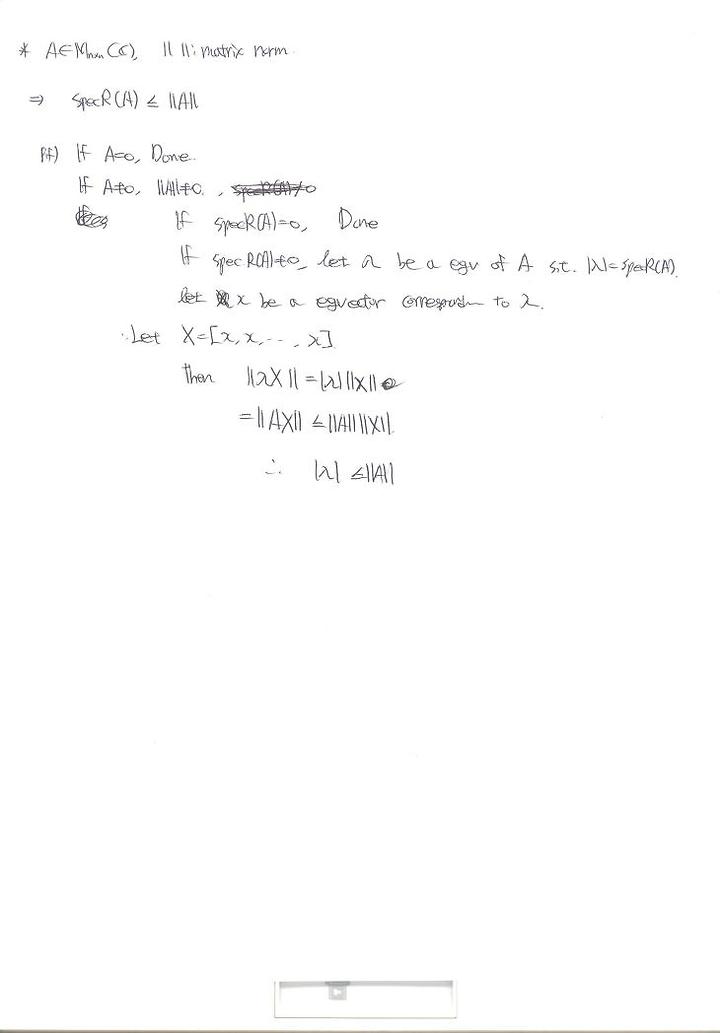 * A∈Mₙₓₙ(ℂ), || ||: matrix norm
⇒ specR(A) ≤ ||A||
Pf) If A=0, Done.
If A≠0, ||A||≠0, specR(A)≠0
If specR(A)=0, Done
If specR(A)≠0, let λ be a egv of A s.t. |λ|=speR(A).
let x be a egvector correspondn to λ.
Let X=[x,x,⋯,x]
then ||λX||=|λ| ||X||
=||AX|| ≤||A|| ||X||.
∴ |λ| ≤||A||